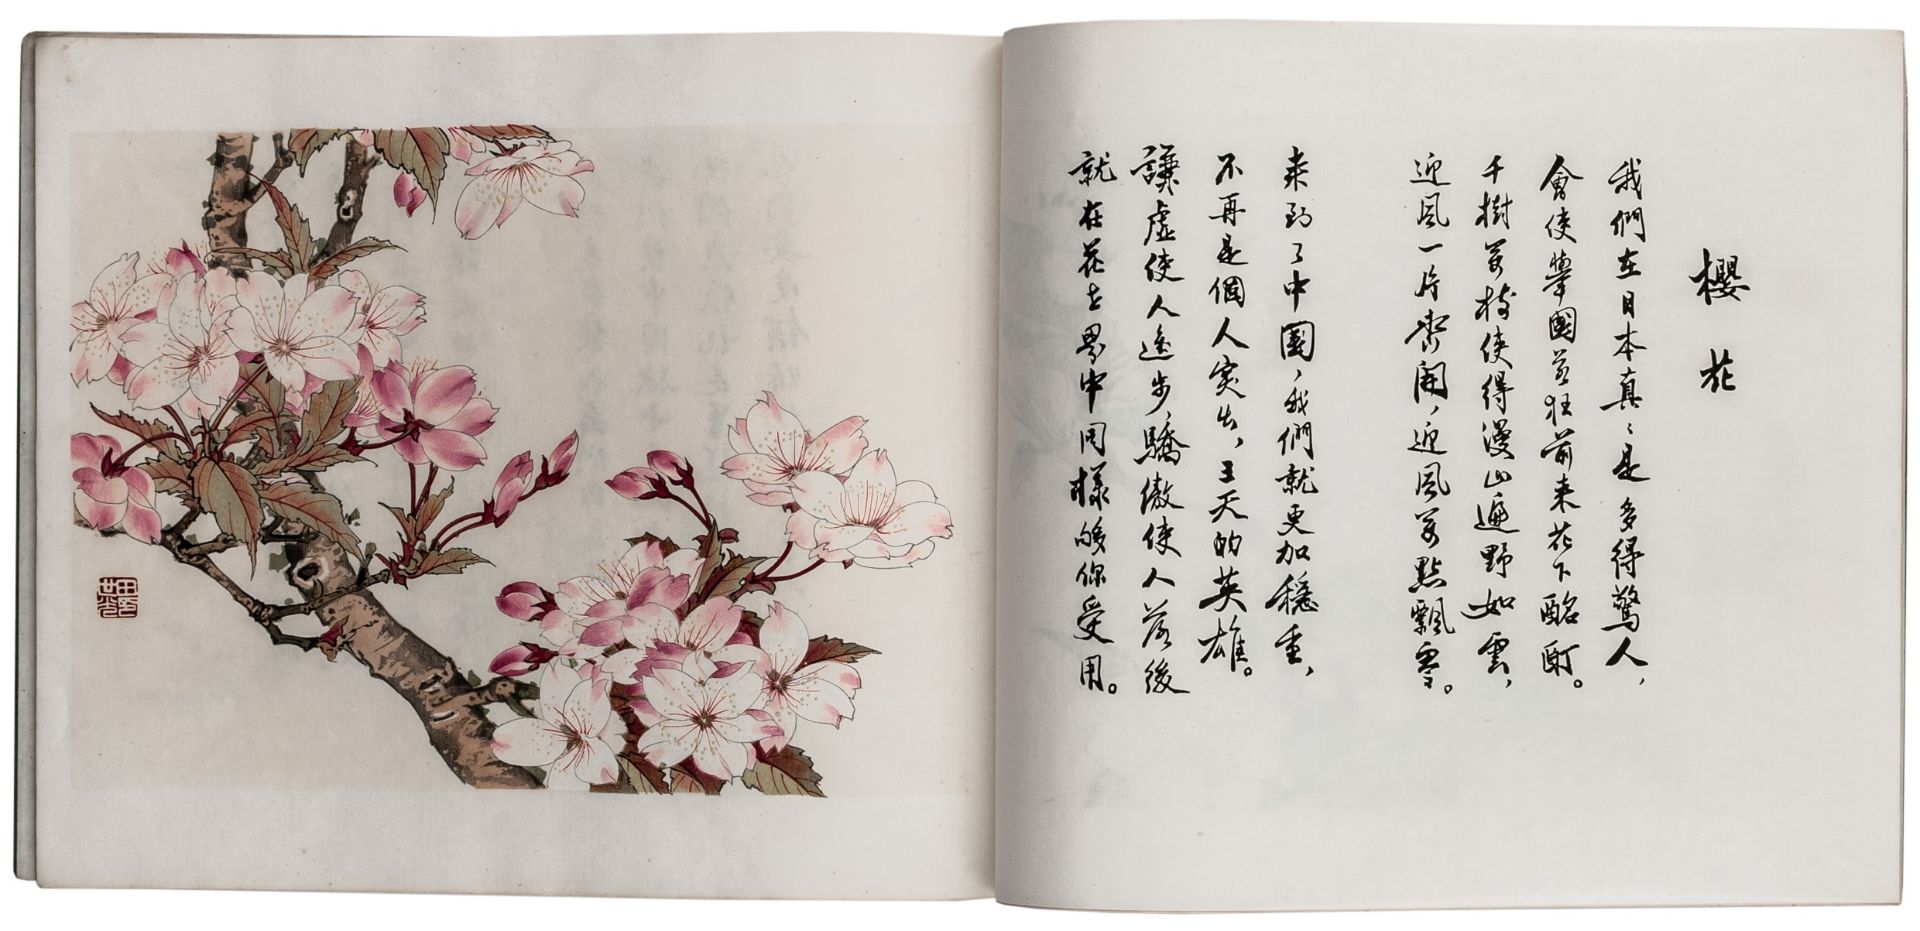 櫻花
我們在日本真〻是多得驚人,
會使舉國若狂前來花下酩酊。
千樹萬樹使得漫山遍野如雲,
迎風一片齊開,迎風萬點飄零。
來到了中國,我們就更加穩重,
不再是個人突出,天的英雄。
謙虛使人進步,驕傲使人落後
就在花世界中同樣够你受用。
田世光印